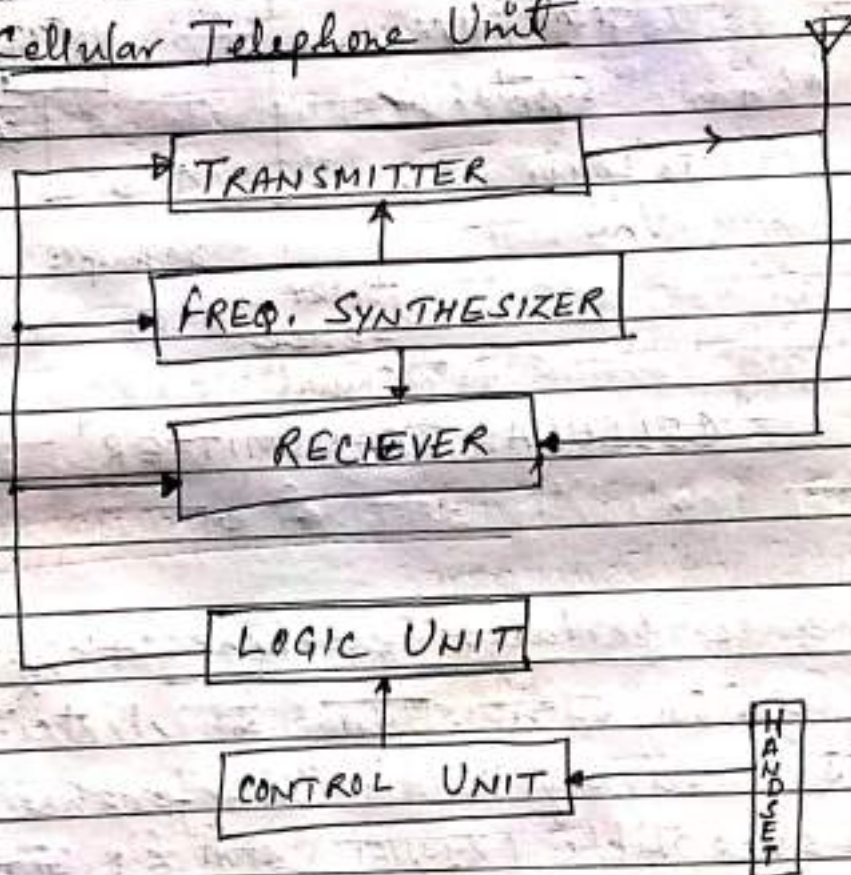 Cellular Telephone Unit
TRANSMITTER
FREQ. SYNTHESIZER
RECIEVER
LOGIC UNIT
CONTROL UNIT
HANDSET